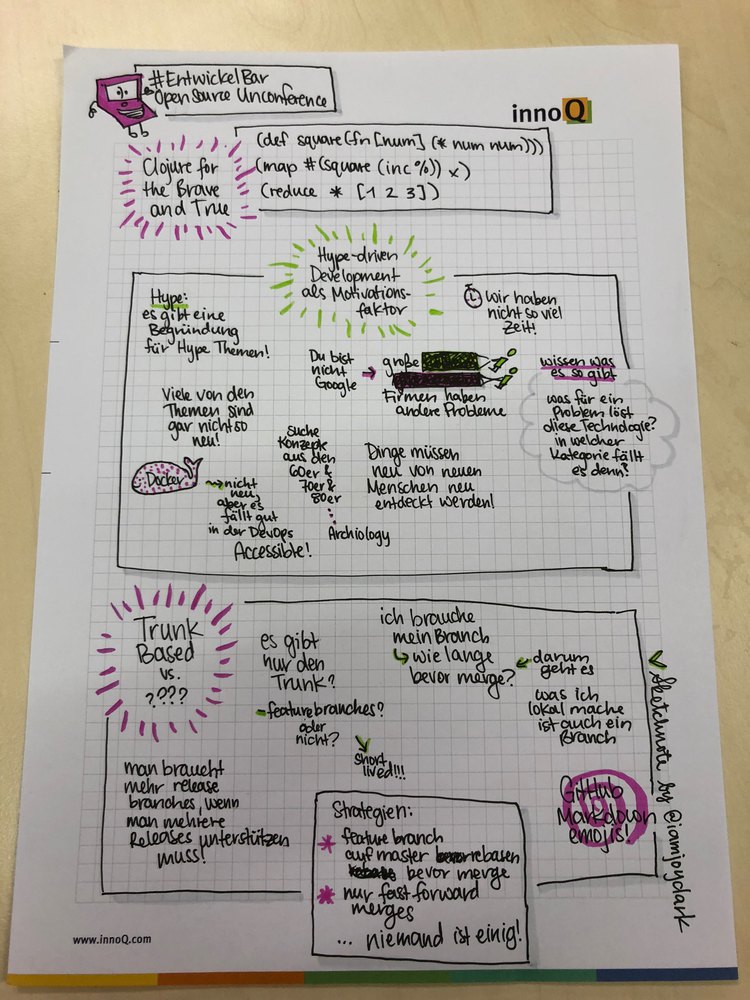 #EntwickelBar
OpenSource Unconference
innoQ
Clojure for
the Brave
and True
(def square (fn [num] (* num num)))
(map #(square (inc %)) x)
(reduce * [1 2 3])
Hype-driven
Development
als Motivations-
faktor
Hype:
es gibt eine
Begründung
für Hype Themen!
Wir haben
nicht so viel
Zeit!
Du bist
nicht
Google
große
Firmen haben
andere Probleme
wissen was
es so gibt
was für ein
Problem löst
diese Technologie?
in welcher
Kategorie fällt
es denn?
Viele von den
Themen sind
gar nicht so
neu!
Suche
Konzepte
aus den
60er &
70er &
80er
Archiology
Dinge müssen
neu von neuen
Menschen neu
entdeckt werden!
Docker
nicht
neu,
aber es
fällt gut
in der DevOps
Accessible!
Trunk
Based
vs.
????
es gibt
nur den
Trunk?
featurebranches?
oder
nicht?
short
lived!!!
ich brauche
mein Branch
wie lange
bevor merge?
darum
geht es
was ich
lokal mache
ist auch ein
Branch
man braucht
mehr release
branches, wenn
man mehrere
Releases unterstützen
muss!
Strategien:
feature branch
auf master bevor rebasen
rebase bevor merge
nur fast forward
merges
... niemand ist einig!
GitHub
Markdown
emojis!
Sketchnote by @iamjoydark
www.innoQ.com